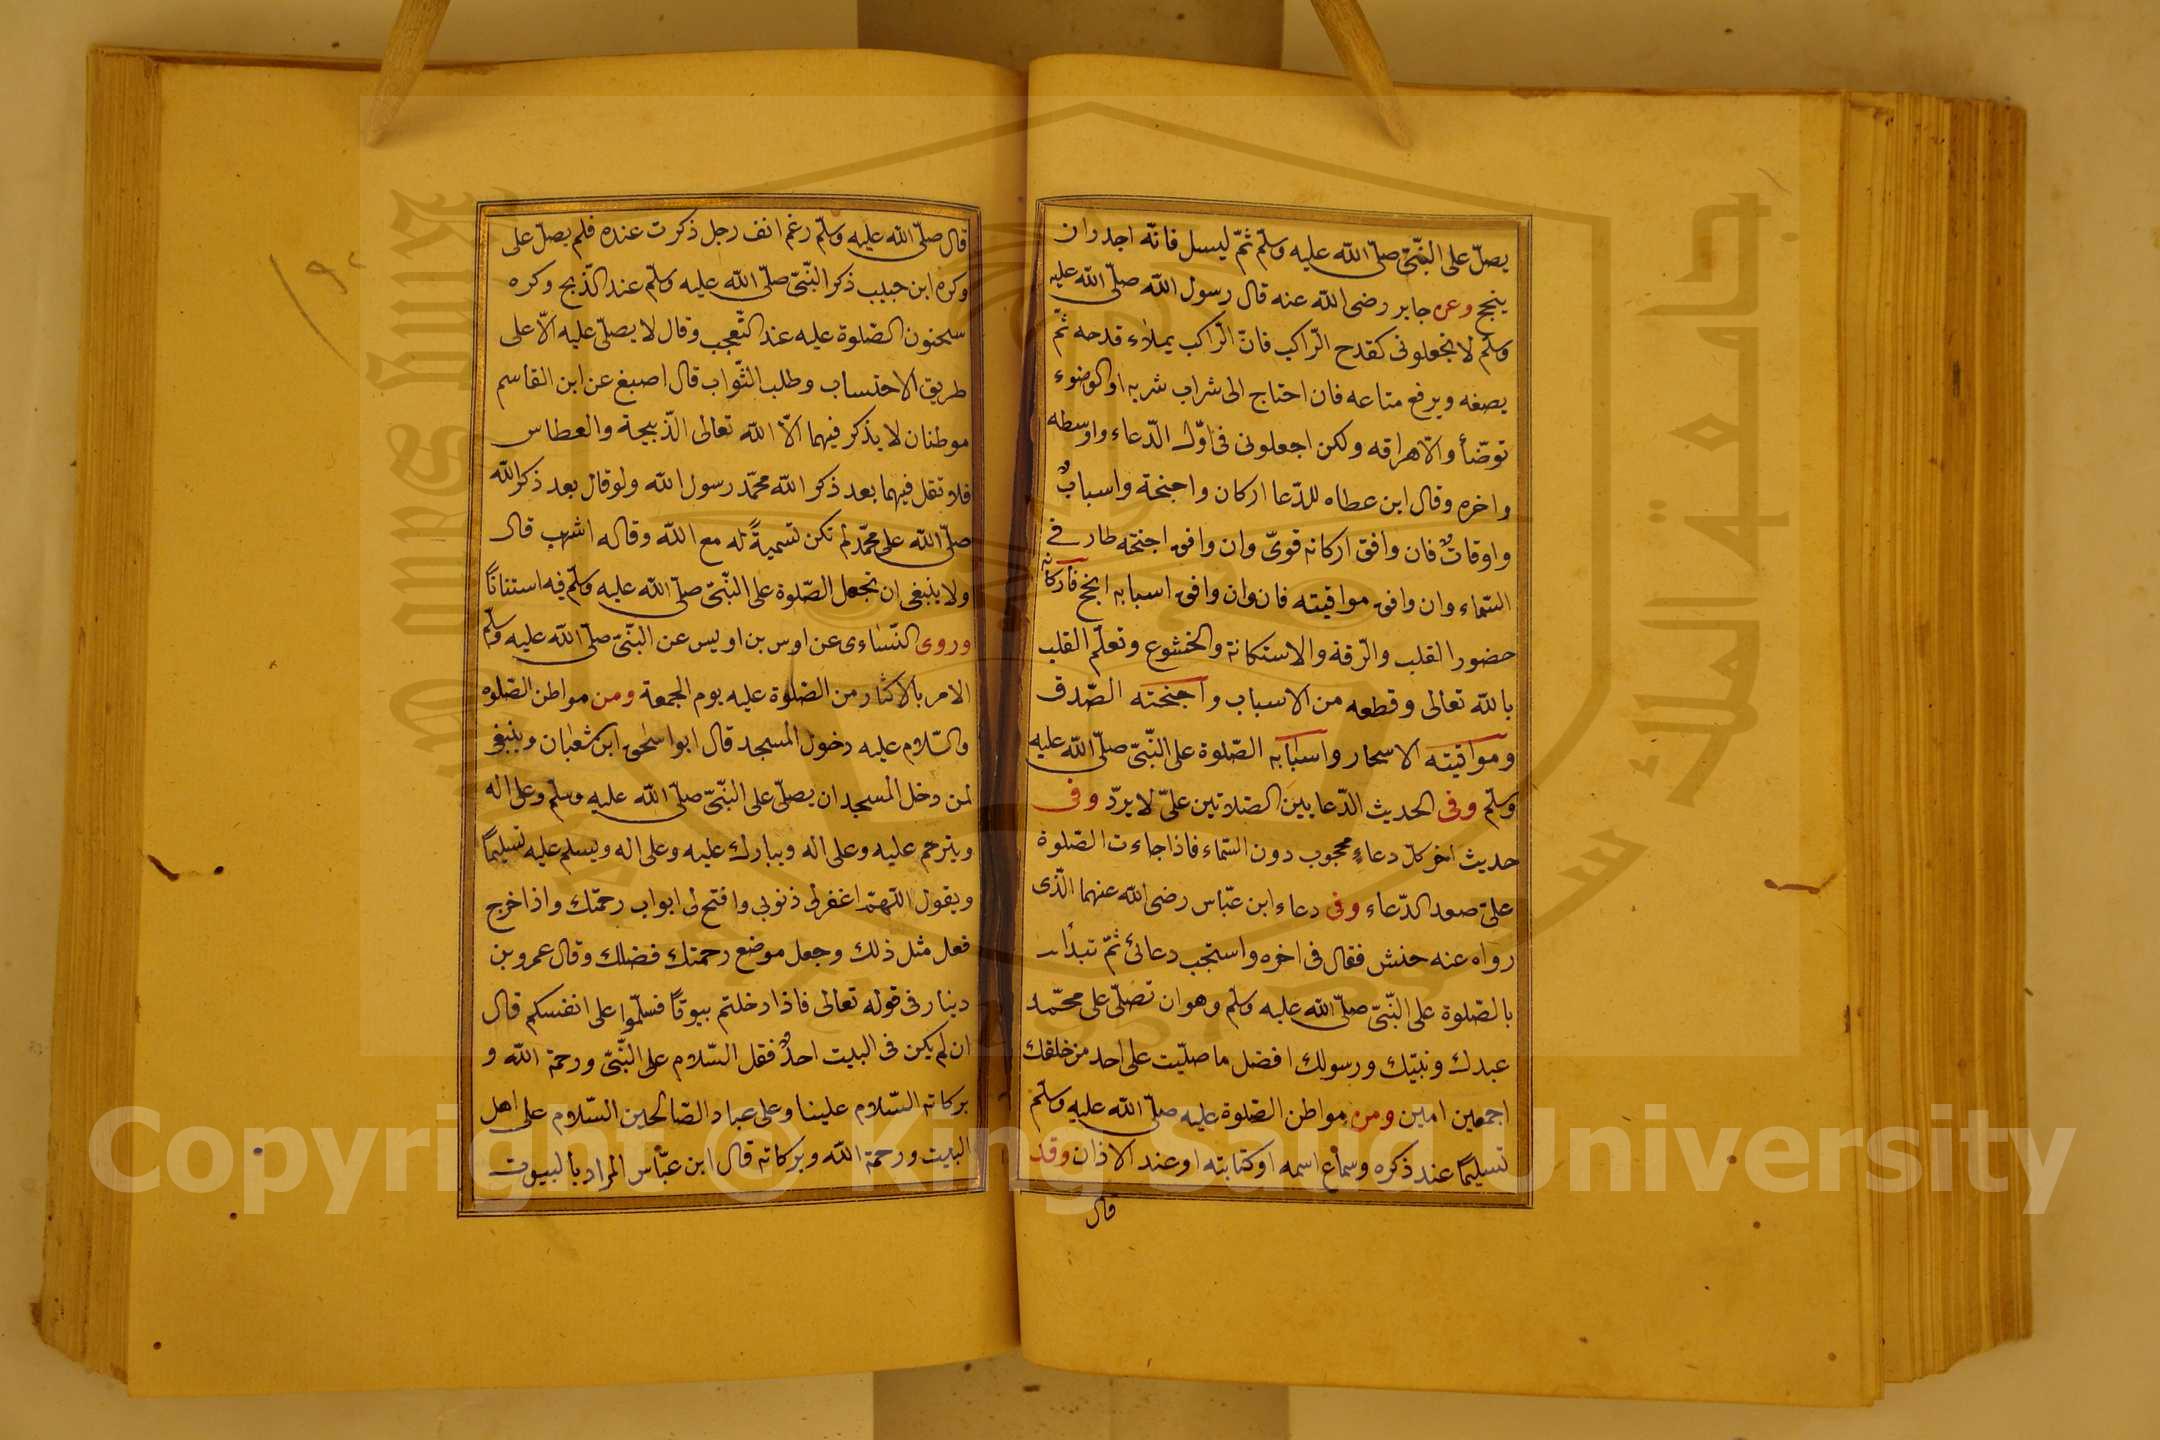 يصلّ على النّبىّ صلّى الله عليه وسلّم ثمّ ليسل فانّه اجدر ان
ينجح وعن جابر رضى الله عنه قال رسول الله صلّى الله عليه
وسلّم لا تجعلونى كقدح الرّاكب فانّ الرّاكب يملاء قدحه ثمّ
يصفه ويرفع متاعه فان احتاج الى شراب شربه او الوضوء
توضّأ والّا هراقه ولكن اجعلونى فى اوّل الدّعاء واوسطه
واخره وقال ابن عطاه للدّعا اركان واجنحة واسبابٌ
واوقاتٌ فان وافق اركانه قوىّ وان وافق اجنحته طار فى
السّماء وان وافق مواقيته فان وان وافق اسبابه انجح فاركانه
حضور القلب والرّقة والاستكانة والخشوع وتعلّم القلب
بالله تعالى وقطعه من الاسباب واجنحته الصّدق
ومواقيته الاسحار واسبابه الصّلوة على النّبىّ صلّى الله عليه
وسلّم وفى الحديث الدّعا بين الصّلاتين علىّ لا يردّ وفى
حديث اخر كلّ دعاءٍ محجوب دون السّماء فاذا جاءت الصّلوة
علىّ صعد الدّعاء وفى دعاء ابن عبّاس رضى الله عنهما الّذى
رواه عنه حنش فقال فى اخره واستجب دعائى ثمّ تبدأ
بالصّلوة على النّبىّ صلّى الله عليه وسلّم وهو ان تصلّى على محمّد
عبدك ونبيّك ورسولك افضل ما صلّيت على احد من خلقك
اجمعين امين ومن مواطن الصّلوة عليه صلّى الله عليه وسلّم
تسليمًا عند ذكره وسماع اسمه او كتابته او عند الاذان وقد
قال
قال صلّى الله عليه وسلّم رغم انف رجل ذكرت عنده فلم يصلّ على
وكره ابن حبيب ذكر النّبىّ صلّى الله عليه وسلّم عند الذّبح وكره
سحنون الصّلوة عليه عند التّعجب وقال لا يصلّى عليه الّا على
طريق الاحتساب وطلب الثّواب قال اصبغ عن ابن القاسم
موطنان لا يذكر فيهما الّا الله تعالى الذّبيحة والعطاس
فلا تقل فيهما بعد ذكر الله محمّد رسول الله ولو قال بعد ذكر الله
صلّى الله على محمّد لم تكن تسميةً له مع الله وقاله اشهب قال
ولا ينبغى ان تجعل الصّلوة على النّبىّ صلّى الله عليه وسلّم فيه استنانًا
وروى النّساءى عن اوس بن اويس عن النّبىّ صلّى الله عليه وسلّم
الامر بالاكثار من الصّلوة عليه يوم الجمعة ومن مواطن الصّلوه
والسّلام عليه دخول المسجد قال ابو اسحق ابن شعبان وينبغى
لمن دخل المسجد ان يصلّى على النّبىّ صلّى الله عليه وسلّم وعلى اله
ويترحم عليه وعلى اله ويبارك عليه وعلى اله ويسلم عليه تسليمًا
ويقول اللّهمّ اغفر لى ذنوبى وافتح لى ابواب رحمتك واذا خرج
فعل مثل ذلك وجعل موضع رحمتك فضلك وقال عمرو بن
دينار فى قوله تعالى فاذا دخلتم بيوتًا فسلّموا على انفسكم قال
ان لم يكن فى البيت احدٌ فقل السّلام على النّبىّ ورحمة الله و
بركاته السّلام علينا وعلى عباد الصّالحين السّلام على اهل
البيت ورحمة الله وبركاته قال ابن عبّاس المراد بالبيوت
Copyright © King Saud University